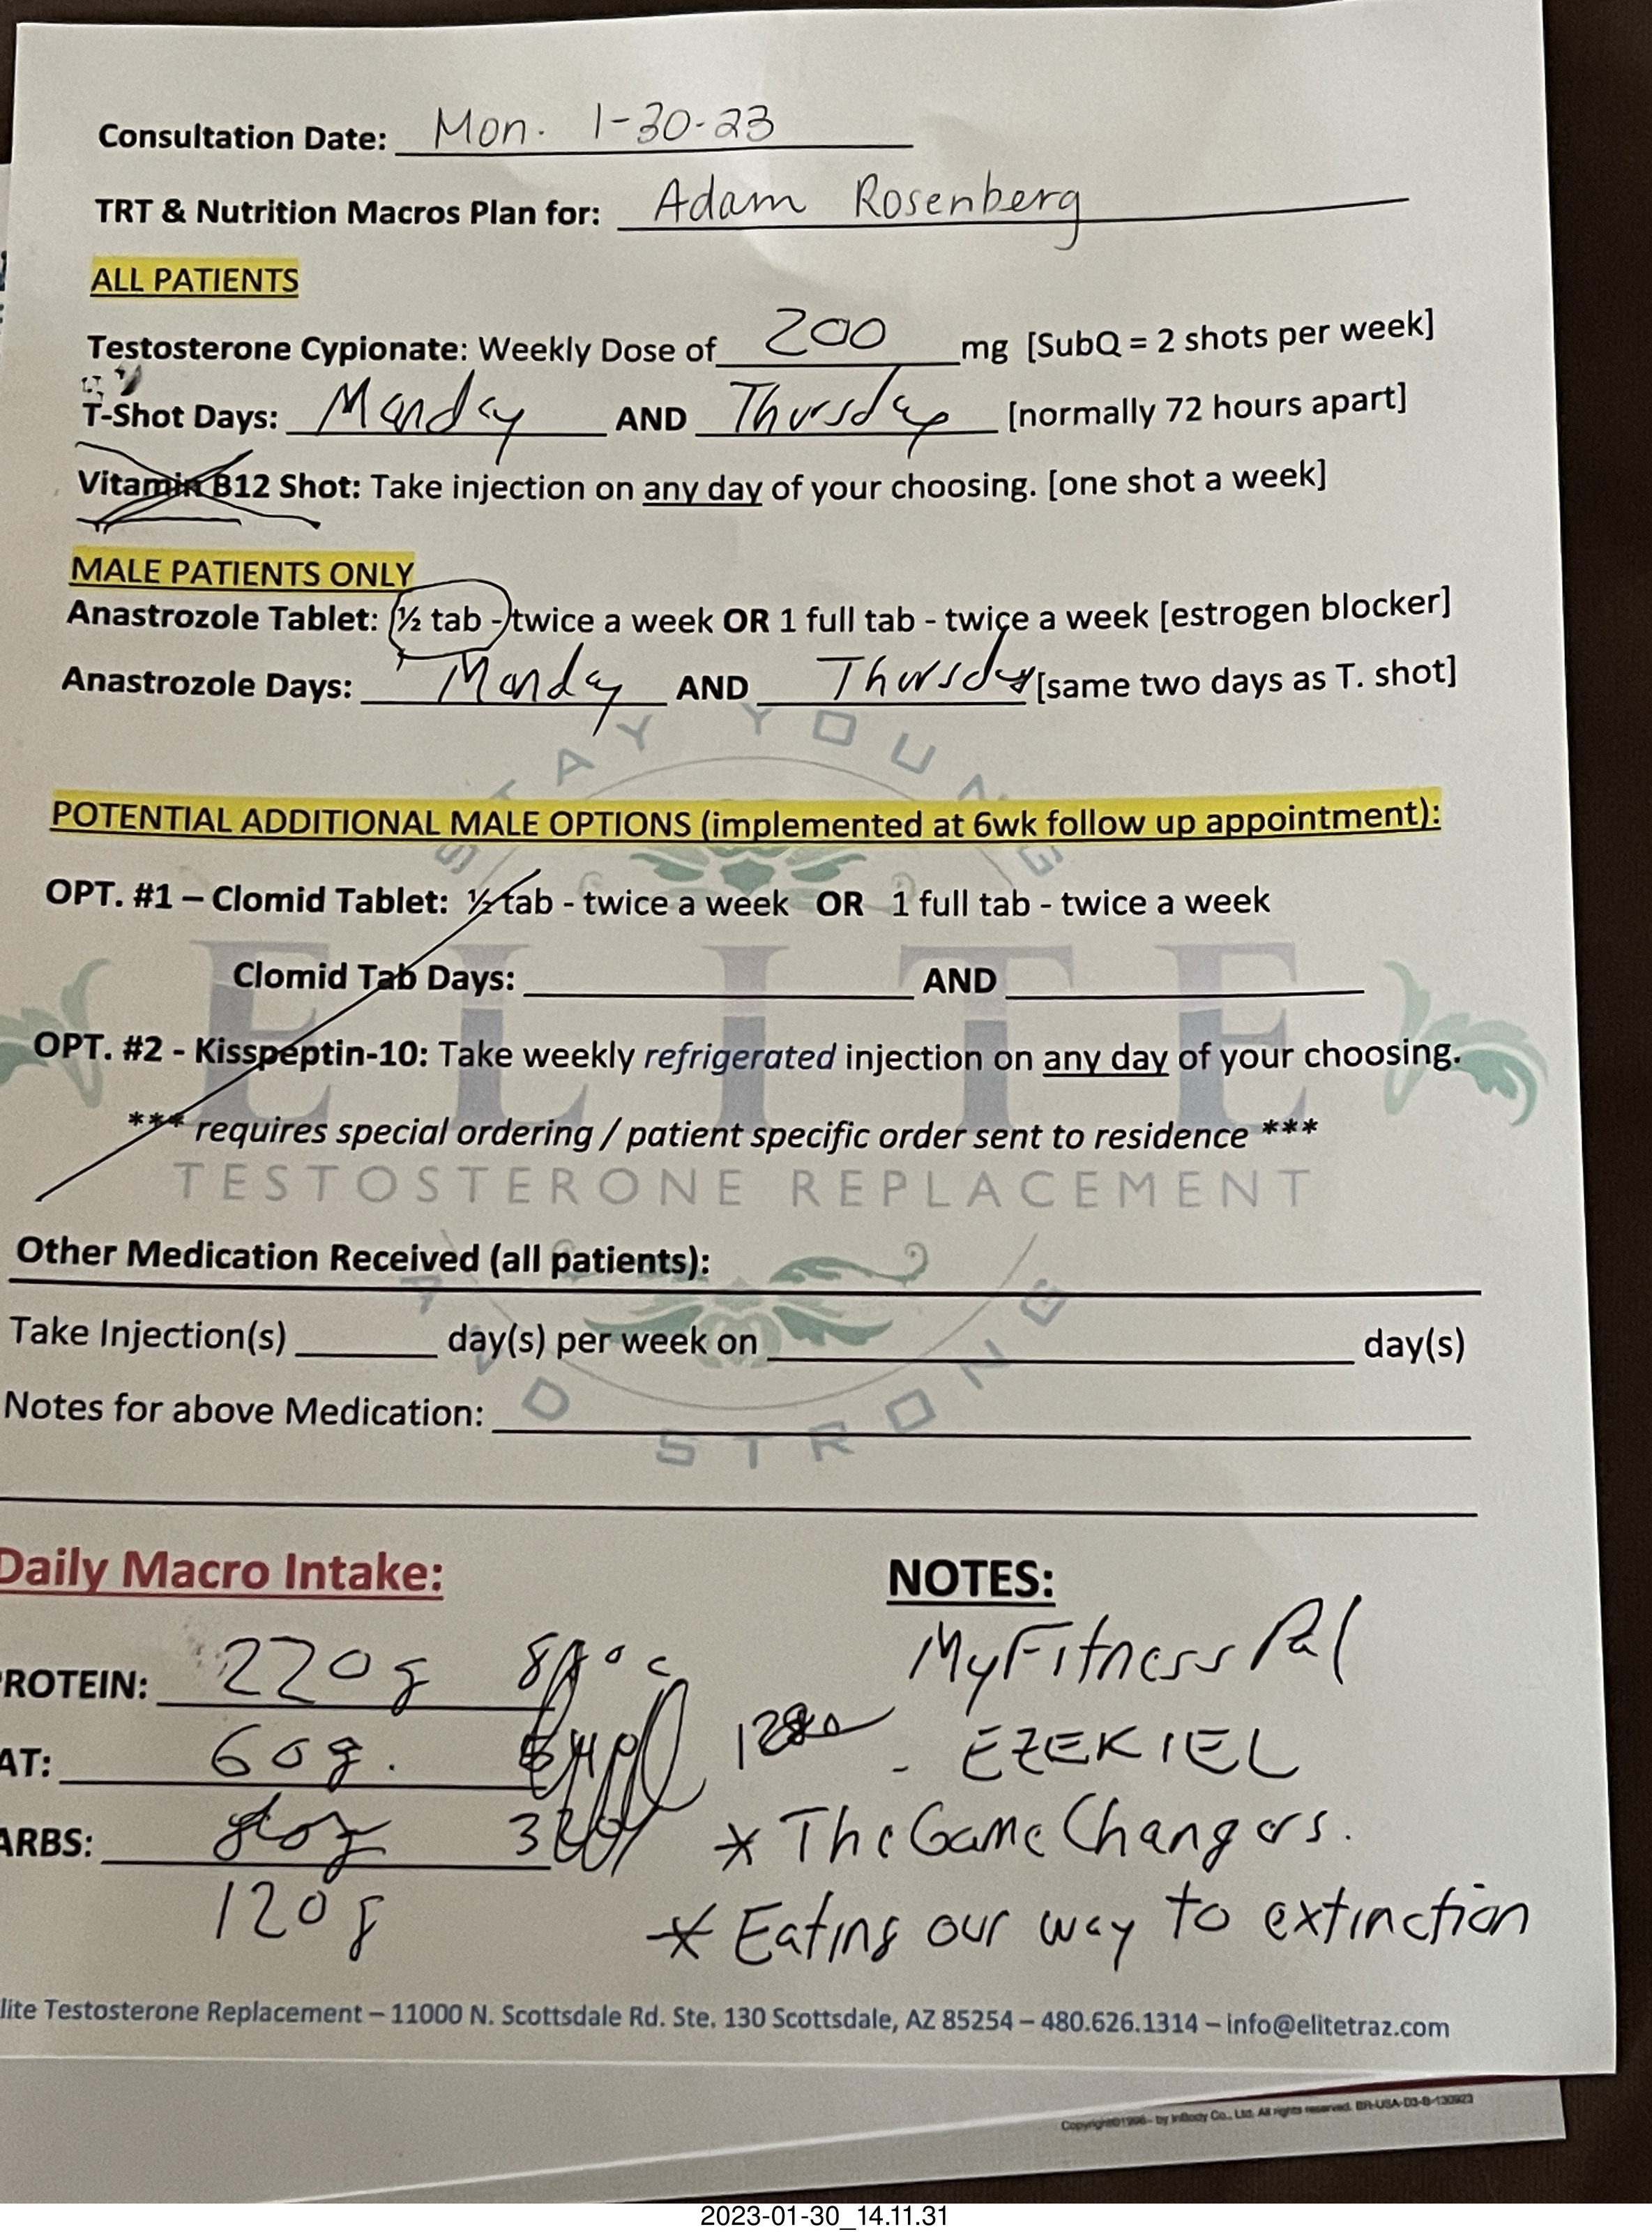 Consultation Date: Mon. 1-30-23
TRT & Nutrition Macros Plan for: Adam Rosenberg
ALL PATIENTS
Testosterone Cypionate: Weekly Dose of 200 mg [SubQ = 2 shots per week]
T-Shot Days: Monday AND Thursday [normally 72 hours apart]
Vitamin B12 Shot: Take injection on any day of your choosing. [one shot a week]
MALE PATIENTS ONLY
Anastrozole Tablet: ½ tab - twice a week OR 1 full tab - twice a week [estrogen blocker]
Anastrozole Days: Monday AND Thursday [same two days as T. shot]
STAY YOUNG
POTENTIAL ADDITIONAL MALE OPTIONS (implemented at 6wk follow up appointment):
OPT. #1 – Clomid Tablet: ½ tab - twice a week OR 1 full tab - twice a week
ELITE
Clomid Tab Days: AND
OPT. #2 - Kisspeptin-10: Take weekly refrigerated injection on any day of your choosing.
*** requires special ordering / patient specific order sent to residence ***
TESTOSTERONE REPLACEMENT
Other Medication Received (all patients):
Take Injection(s) day(s) per week on day(s)
Notes for above Medication:
AND STRONG
Daily Macro Intake: NOTES:
ROTEIN: 220g MyFitnessPal
AT: 60g. - EZEKIEL
ARBS: * The Game Changers.
120g * Eating our way to extinction
lite Testosterone Replacement – 11000 N. Scottsdale Rd. Ste. 130 Scottsdale, AZ 85254 – 480.626.1314 – info@elitetraz.com
Copyright©1996~ by InBody Co., Ltd. All rights reserved. BR-USA-D3-B-130923
2023-01-30_14.11.31